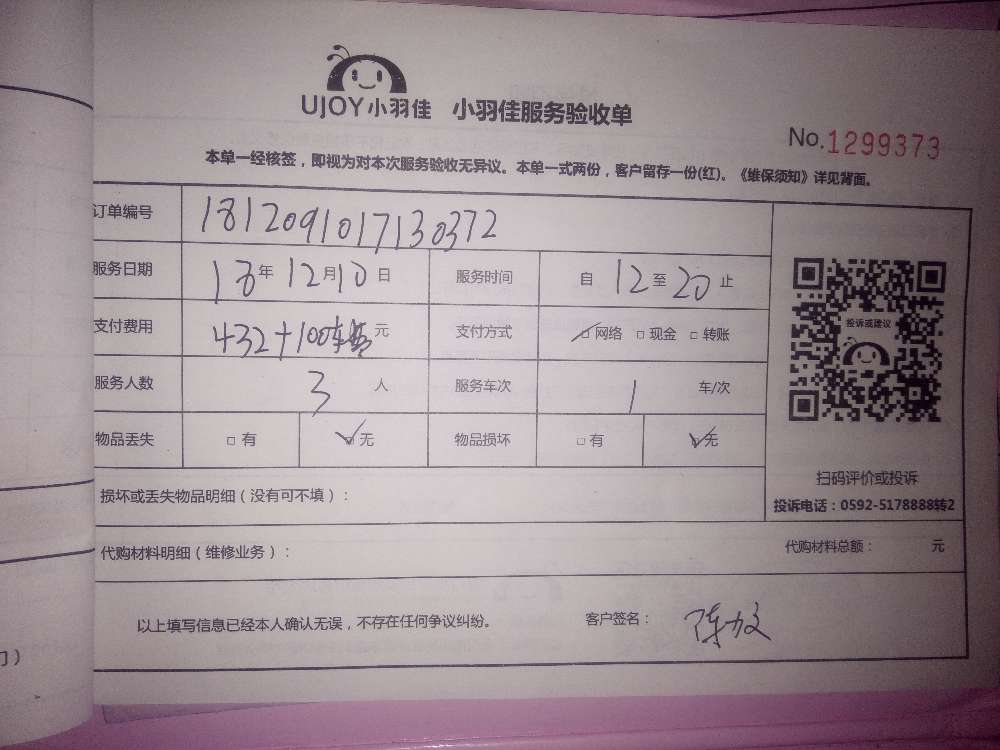 UJOY小羽佳 小羽佳服务验收单
No.1299373
本单一经核签，即视为对本次服务验收无异议。本单一式两份，客户留存一份(红)。《维保须知》详见背面。
订单编号 1812091017130372
服务日期 18年12月10日 服务时间 自12至20止
支付费用 432+100车费元 支付方式 □网络 □现金 □转账
服务人数 3人 服务车次 1 车/次
物品丢失 □有 □无 物品损坏 □有 □无
投诉或建议
扫码评价或投诉
投诉电话：0592-5178888转2
损坏或丢失物品明细（没有可不填）：
代购材料明细（维修业务）： 代购材料总额： 元
以上填写信息已经本人确认无误，不存在任何争议纠纷。 客户签名： 陈